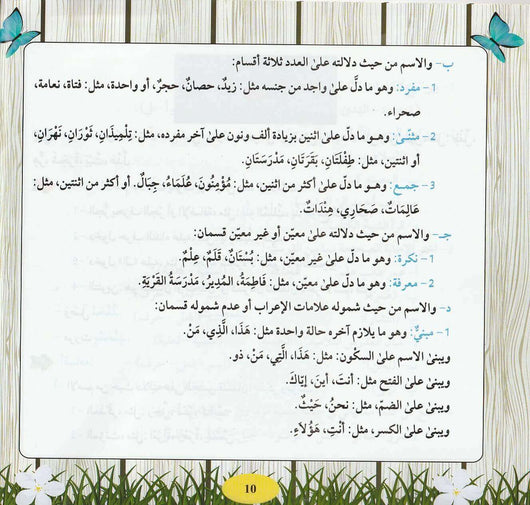 ب- والاسم من حيث دلالته على العدد ثلاثة أقسام:
1- مفرد: وهو ما دلَّ على واحد من جنسه مثل: زيدٌ، حصانٌ، حجرٌ، أو واحدة، مثل: فتاة، نعامة،
صحراء.
2- مثنىً: وهـو ما دلّ على اثنين بزيادة ألف ونون على آخر مفرده، مثل: تِلْمِيذَانِ، ثَوْرَانِ، نَهْرَانِ،
أو اثنتين، مثل: طِفْلَتَانِ، بَقَرَتَانِ، مَدْرَسَتَانِ.
3- جمـع: وهـو ما دلّ على أكثر من اثنين، مثل: مُؤْمِنُونَ، عُلَمَاءُ، جِبَالٌ. أو أكثر من اثنتين، مثل:
عَالِمَاتٌ، صَحَارِي، هِنْدَاتٌ.
جـ- والاسم من حيث دلالته على معيّن أو غير معيّن قسمان:
1- نكرة: وهو ما دلّ على غير معيّن، مثل: بُسْتَانٌ، قَلَمٌ، عِلْمٌ.
2- معرفة: وهو ما دلّ على معيّن، مثل: فَاطِمَةُ، المُدِيرُ، مَدْرَسَةُ القَرْيَةِ.
د- والاسم من حيث شموله علامات الإعراب أو عدم شموله قسمان:
1- مبنيٌّ: وهو ما يلازم آخره حالة واحدة مثل: هَذَا، الَّذِي، مَنْ.
ويبنى الاسم على السكُون: مثل: هَذَا، الَّتِي، مَنْ، ذو.
ويبنى على الفتح مثل: أنتَ، أينَ، إيّاكَ.
ويبنى على الضمّ، مثل: نحنُ، حَيْثُ.
ويبنى على الكسر، مثل: أنْتِ، هَؤُلَاءِ.
10